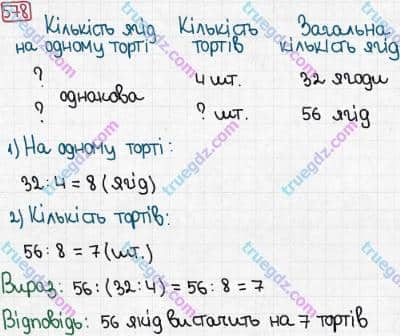 578
Кількість ягід Кількість Загальна
на одному торті тортів кількість ягід
? 4 шт. 32 ягоди
однакова
? ? шт. 56 ягід
1) На одному торті:
32:4=8 (ягід)
2) Кількість тортів:
56:8=7 (шт.)
Вираз: 56:(32:4)=56:8=7
Відповідь: 56 ягід вистачить на 7 тортів
truegdz.com